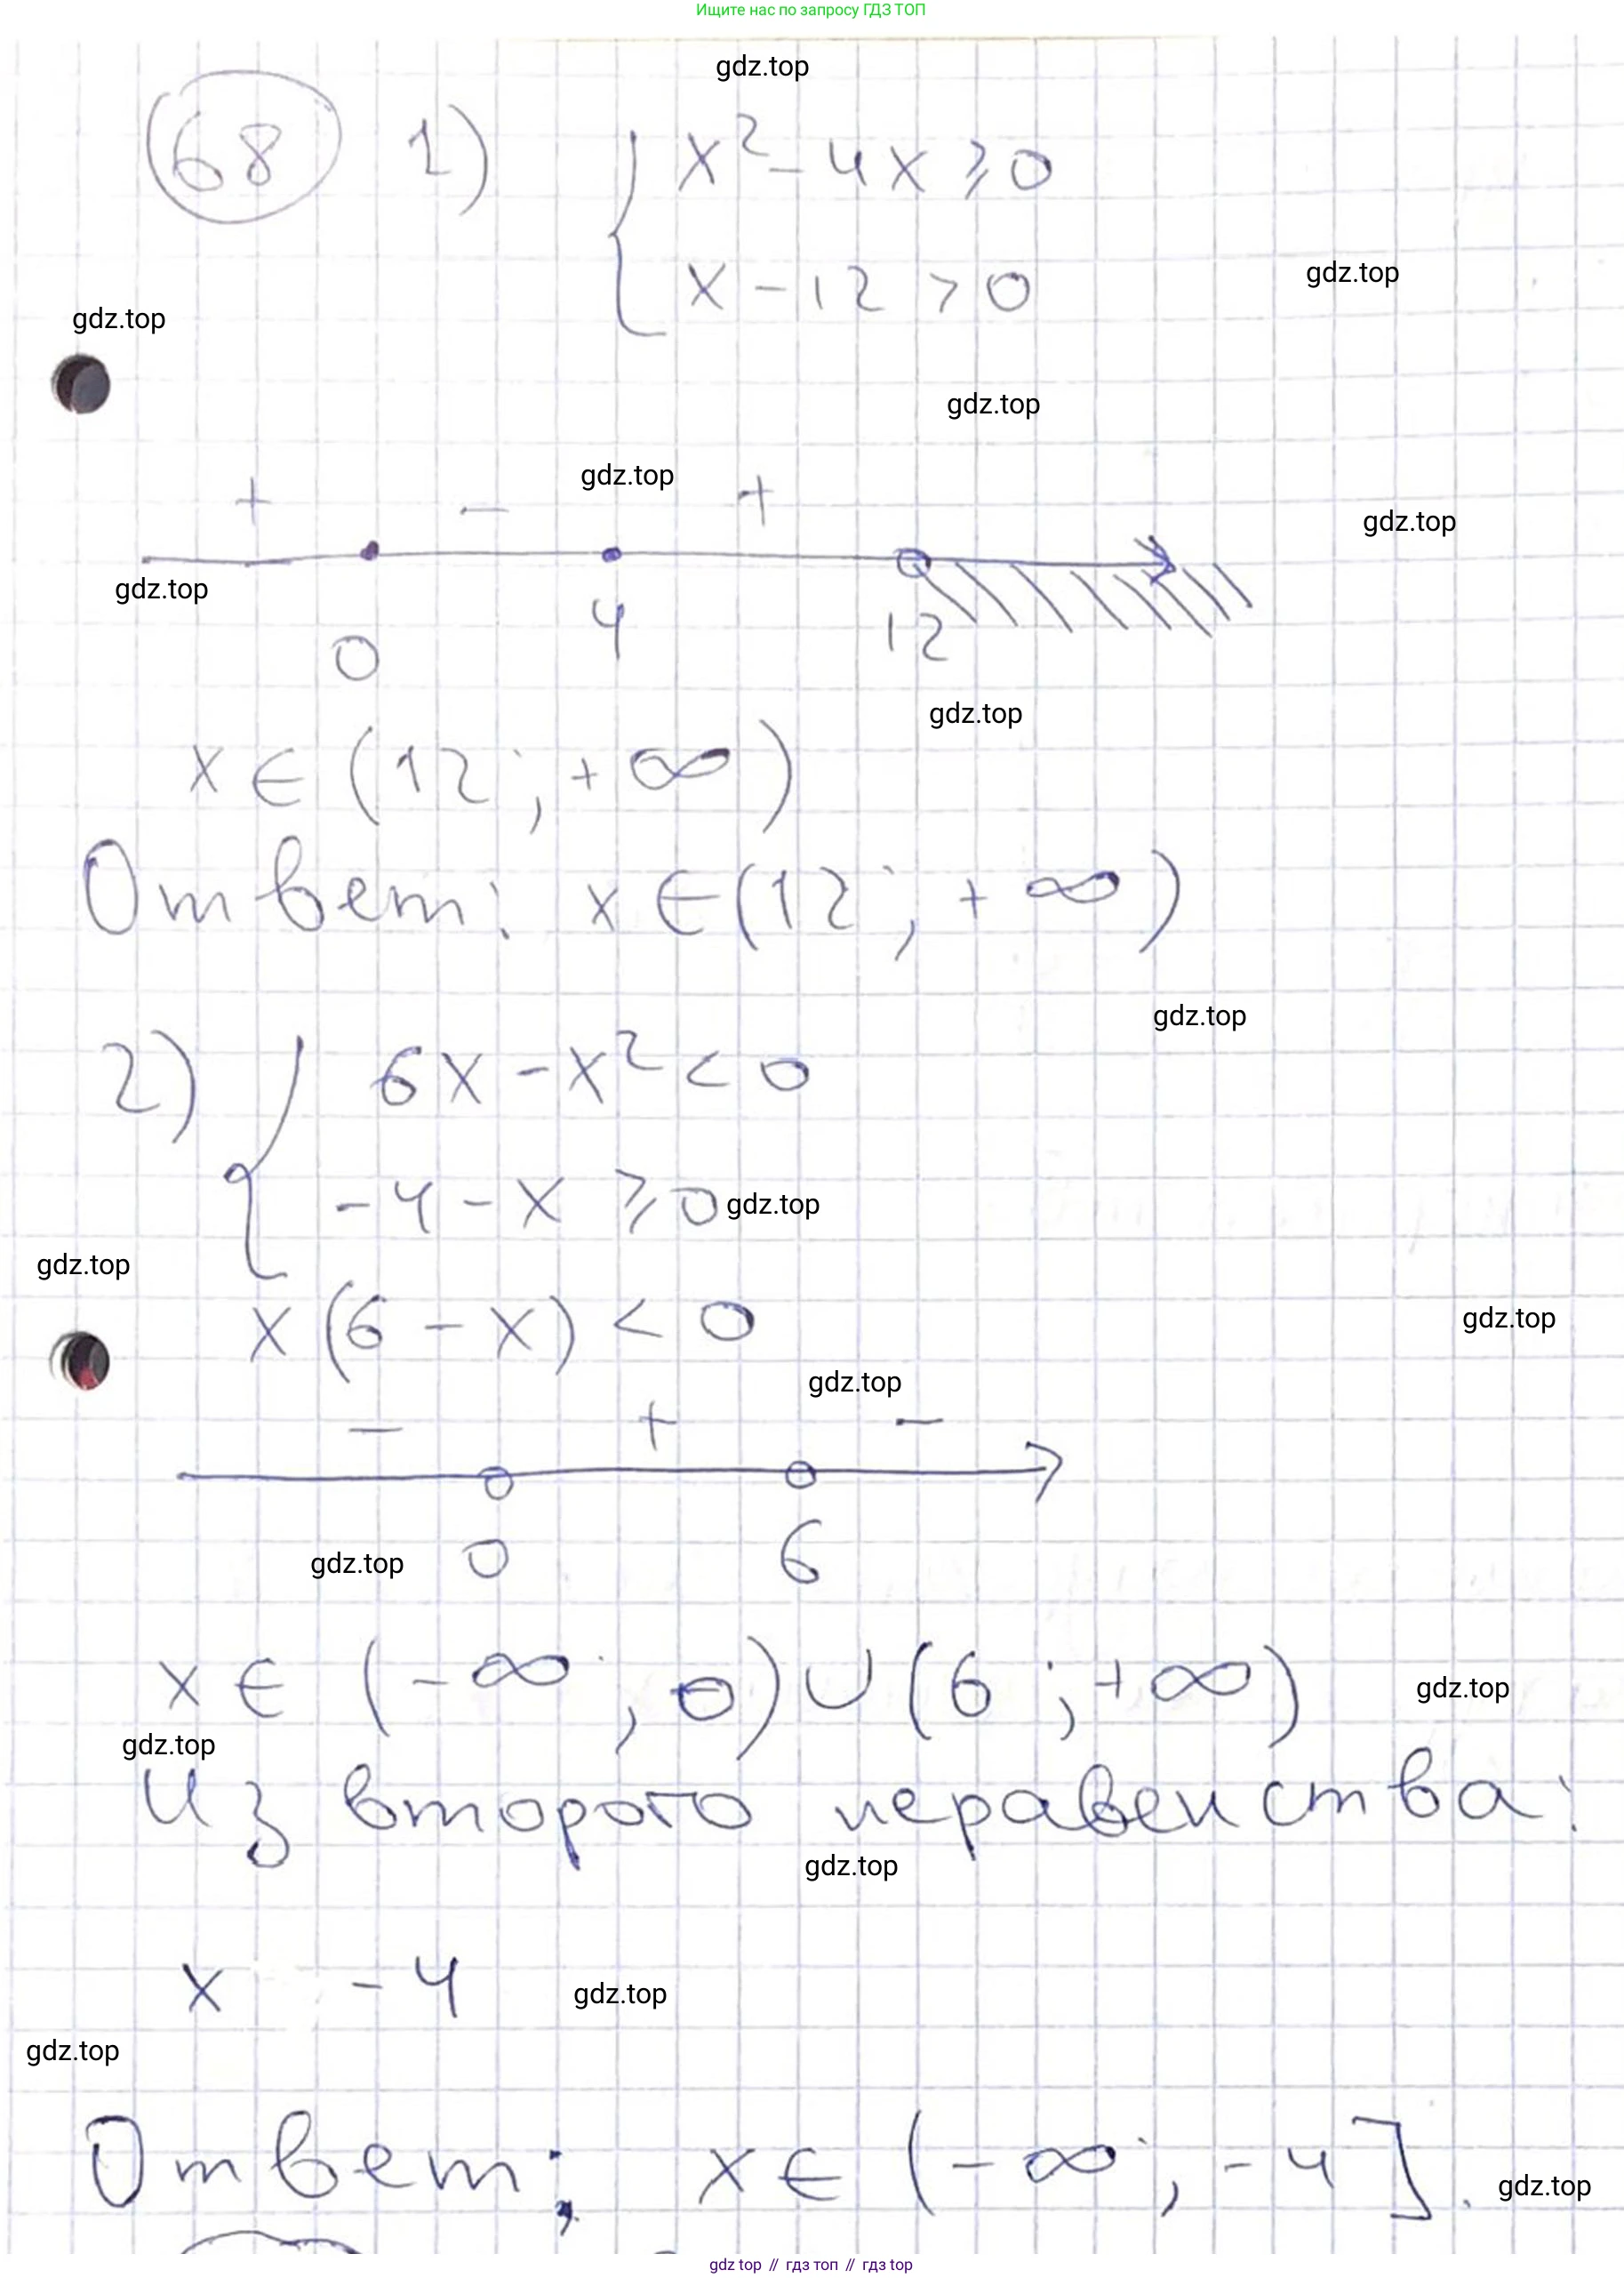 Ищите нас по запросу ГДЗ ТОП
gdz.top
68 1) { x² - 4x ⩾ 0
x - 12 > 0
gdz.top
gdz.top
gdz.top
gdz.top
+ − +
gdz.top
gdz.top
0 4 12
gdz.top
x ∈ (12 ; +∞)
Ответ: x ∈ (12 ; +∞)
gdz.top
2) { 6x - x² < 0
-4 - x ⩾ 0
gdz.top
gdz.top
x (6 - x) < 0
gdz.top
gdz.top
− + −
gdz.top
0 6
x ∈ (-∞ ; 0) ∪ (6 ; +∞)
gdz.top
gdz.top
Из второго неравенства:
gdz.top
x -4
gdz.top
gdz.top
Ответ: x ∈ (-∞ ; -4].
gdz.top
gdz top // гдз топ // гдз top